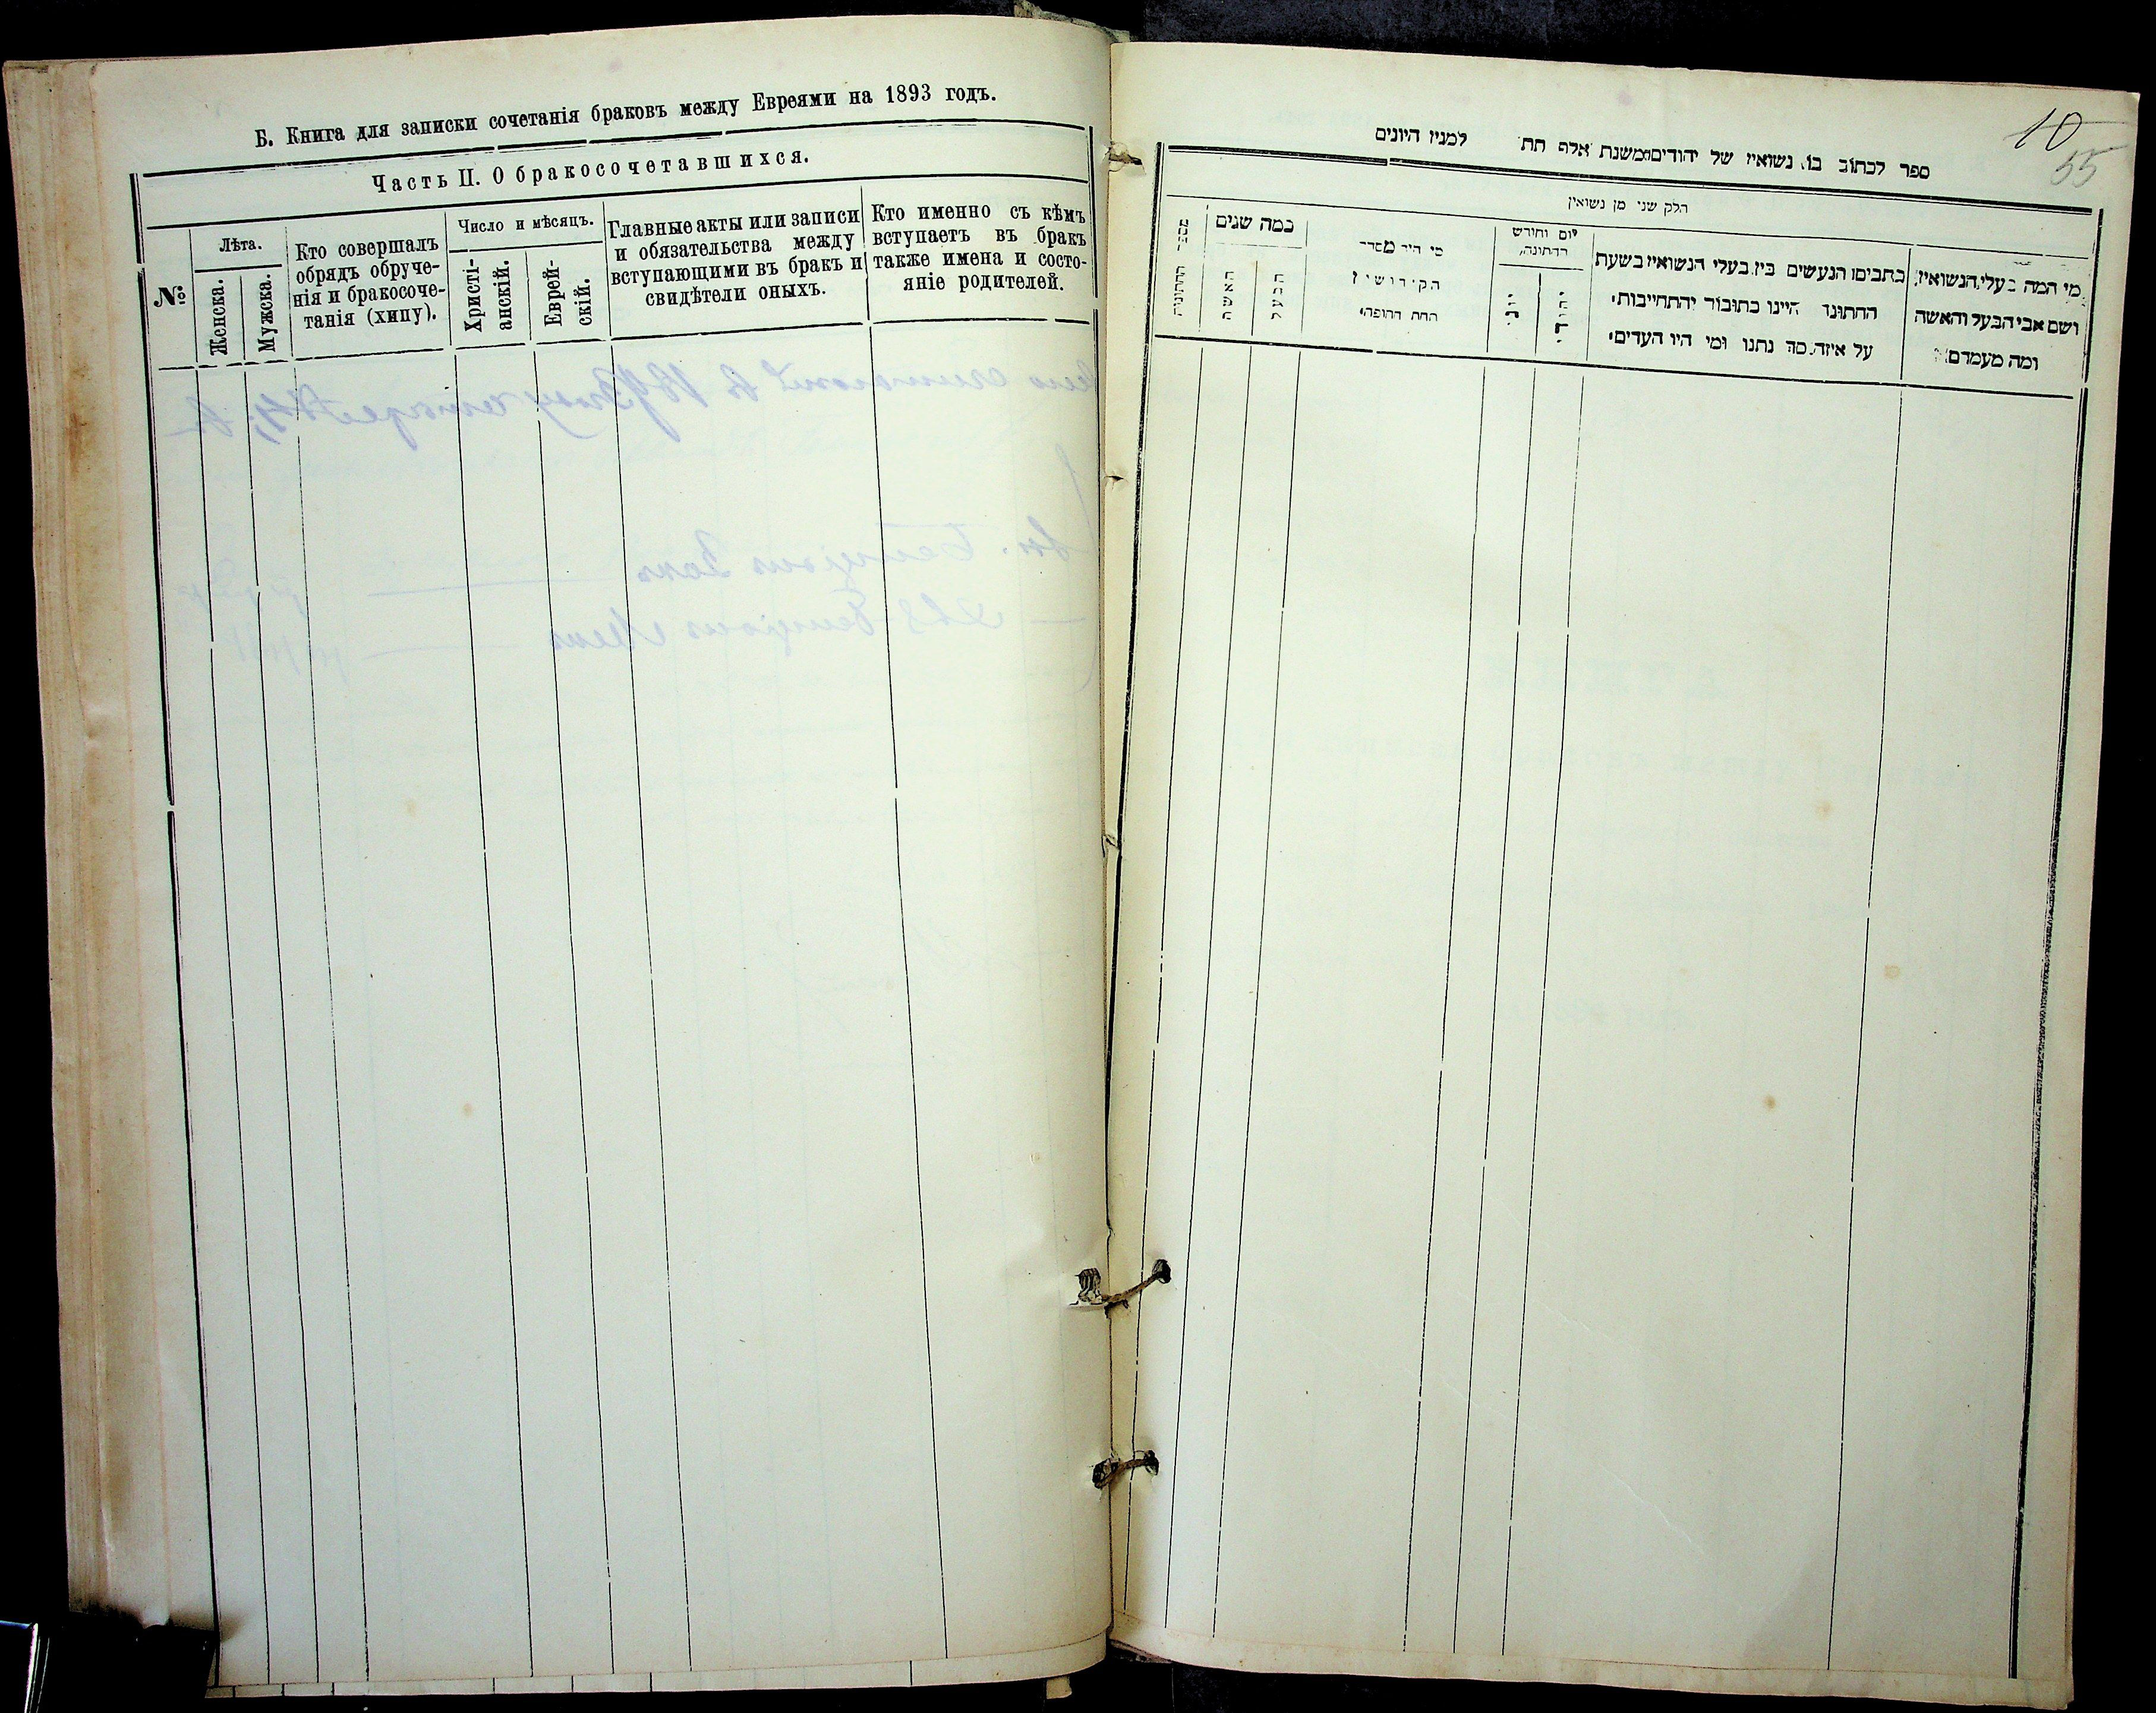 Б. Книга для записки сочетанія браковъ между Евреями на 1893 годъ.
Часть II. О бракосочетавшихся.
№
Лѣта.
Женска.
Мужска.
Кто совершалъ
обрядъ обруче-
нія и бракосоче-
танія (хипу).
Число и мѣсяцъ.
Христі-
анскій.
Еврей-
скій.
Главные акты или записи
и обязательства между
вступающими въ бракъ и
свидѣтели оныхъ.
Кто именно съ кѣмъ
вступаетъ въ бракъ
также имена и состо-
яніе родителей.
10
55
ספר לכתוב בו נשואין של יהודים משנת אלף תת למנין היונים
חלק שני מן נשואין
מי המה בעלי הנשואין,
ושם אבי הבעל והאשה
ומה מעמדם
כתבים הנעשים בין בעלי הנשואין בשעת
החתונו היינו כתובור והתחייבות
על איזה סך נתנו ומי היו העדים
יום וחודש
החתונה,
יהודי
יוני
מי היה מסדר
הקידושין
תחת החופה
כמה שנים
הבעל
האשה
מספר החתונות